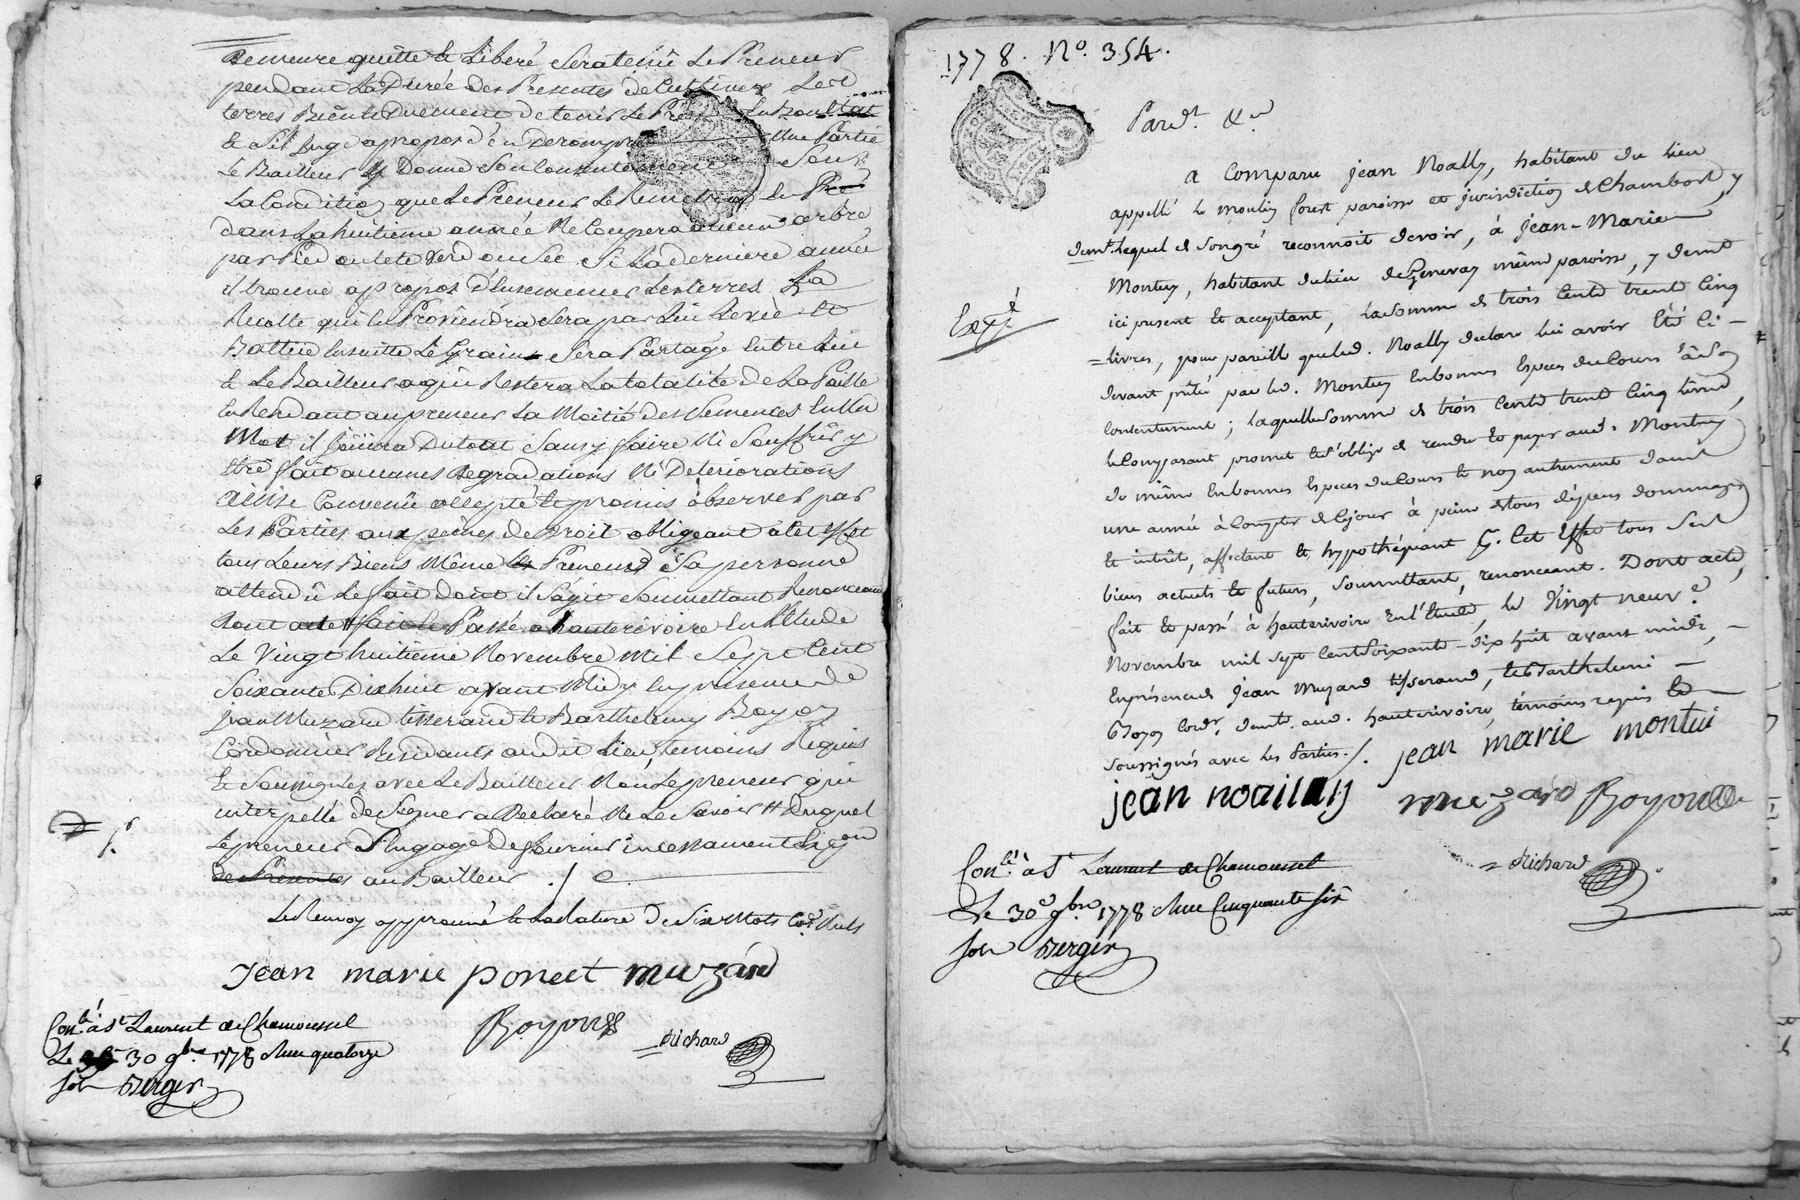 Demeure quitte et Liberé Sera tenû Le Preneur
pendant La Durée des Presentes de Cultiver Les d
terres Bien et Duement de tenir Le Pré En Bon Etat
et S'il Juge apropos d'en Derompre Une Partie
Le Bailleur y Donne Son Consentement Sous
La Condition que Le Preneur Le Remettra En Pré
dans La huitieme année Ne Coupera aucun arbre
par Pied ou tete Verd ou Sec Si La derniere année
il trouve apropos D'ensemencer Les terres La
Recolte qui en Proviendra Sera par Lui Levée Et
Battue Ensuitte Le Grain Sera Partagé Entre Lui
et Le Bailleur a qui Restera La totalité De La Paille
En Rendant au preneur La Moitié des Semences En Un
Mot il Jouira Du tout Sans y faire Ni Souffrir y
être fait aucunes Degradations Ni Deteriorations
Ainsi Convenû accepté et promis observer par
Les Parties aux peines de Droit obligeant a Cet effet
tous Leurs Biens Même Le Preneur Sa personne
attendû Le fait dont il S'agit Soumettant Renonceant
Dont acte fait et Passé a hauterivoire En L'Etude
Le Vingt huitieme Novembre Mil Sept Cent
Soixante Dixhuit avant Midy En presence de
jean Muzard tisserand et Barthelemy Boyon
Cordonnier Residants audit Lieu temoins Requis
et Soussignés avec Le Bailleur Non Le preneur qui
interpellé de Signer a Declaré Ne Le Savoir # Duquel
Le preneur S'Engage De fournir incessament
des Presentes au Bailleur ./.
Le Renvoy approuvé et La Rature De Six Mots Nuls
jean marie poncet muzard
Boyon
Richard
Con.lé à St Laurent de Chamousset
Le 30 9bre 1778 Reçu quatorze
sols Berger
1778. No. 354.
Pard.t &a
a Comparu jean Noally, habitant du lieu
appellé le moulin forest paroisse et jurisdiction de Chambost, y
dem.t lequel de Son gré reconnoit devoir, à jean-Marie
Montuy, habitant du lieu de Genevay même paroisse, y dem.t
ici present et acceptant, la Somme de trois Cents trente Cinq
=livres, pour pareille que led. Noally declare lui avoir Eté Ci-
devant prêté par led. Montuy En bonnes Especes du Cours à Son
Contentement; laquelle Somme de trois Cents trente Cinq livres,
le Comparant promet et S'oblige de rendre et payer aud. Montuy
de même En bonnes Especes du Cours et non autrement dans
une année à Compter de Ce jour à peine de tous dépens dommages
et intrêt, affectant et hypothéquant p. Cet Effet tous Ses
biens actuels et futurs, Soumettant, renonceant. Dont acte,
fait et passé à hauterivoire En l'Etude, le Vingt neuf
Novembre mil Sept Cent Soixante-dix huit avant midi,
En présence de jean Muzard tisserand, et Barthelemi
Boyon Cord.r, dem.ts aud. hauterivoire, témoins requis et
Soussignés avec les Parties ./.
Expé
jean marie montui
jean noailly muzard Boyon
Richard
Con.lé à St Laurent de Chamousset
Le 30e 9bre 1778 Reçu Cinquante Six
sols Berger